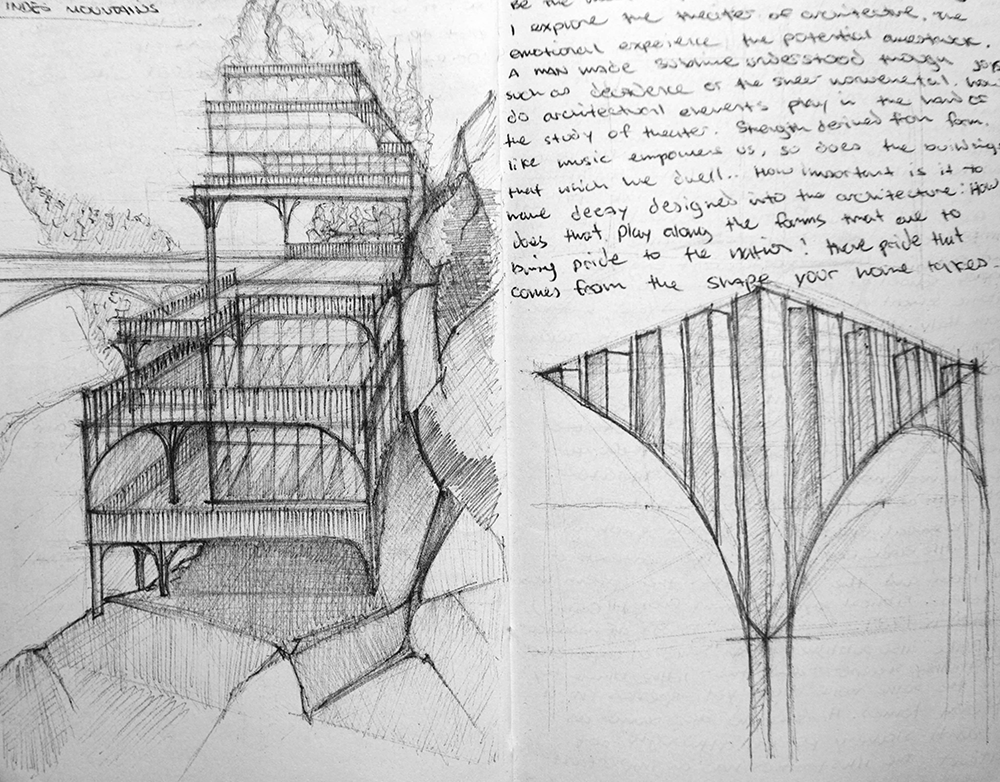 INDES MOUNTAINS
Be the
I explore the theater of architecture. The
emotional experience the potential awestruck.
A man made sublime understood though joys
such as decadence or the sheer monumental. how
do architectural elements play in the hand of
the study of theater. Strength derived from form.
like music empowers us, so does the buildings
that which we dwell.. How important is it to
have decay designed into the architecture: How
does that play along the forms that are to
bring pride to the nation! there pride that
comes from the shape your home takes.